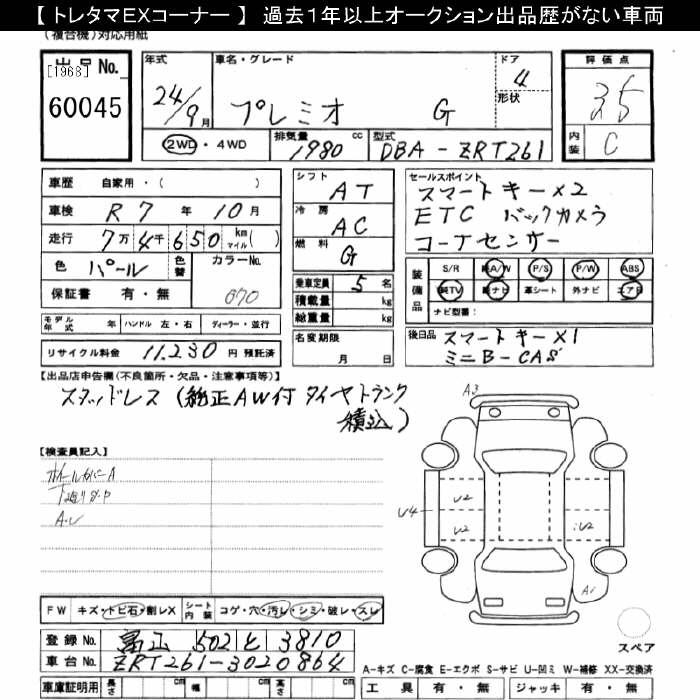 【 トレタマEXコーナー 】 過去1年以上オークション出品歴がない車両
(複合機)対応用紙
出品No.
[1968]
60045
年式
24/9月
車名・グレード
プレミオ G
ドア
4
形状
評価点
3.5
内装
C
2WD・4WD
排気量 1980 cc
型式 DBA-ZRT261
車歴 自家用・( )
車検 R7年10月
走行 7万4千650 km マイル( )
色 パール 色替 カラーNo. 070
保証書 有・無
モデル年式 年 ハンドル 左・右 ディーラー・並行
リサイクル料金 11,230 円 預託済
シフト AT
冷房 AC
燃料 G
乗車定員 5 名
積載量 kg
総重量 kg
名変期限
月 日
セールスポイント
スマートキー×2
ETC バックカメラ
コーナセンサー
装備品
S/R 純A/W P/S P/W ABS
純TV 純ナビ 革シート 外ナビ エアB
ナビ型番:
後日品 スマートキー×1
ミニB-CAS
【出品店申告欄(不良箇所・欠品・注意事項等)】
スタッドレス(純正AW付タイヤトランク
積込)
【検査員記入】
ホイールカバーA
A・U
A3
U2
U2
U4
U2
A1
FW キズ・トビ石・割レX
シート内装 コゲ・穴・汚レ・シミ・破レ・スレ
登録No. 富山 502 と 3810
車台No. ZRT261-3020864
車庫証明用 長さ cm 幅 cm 高さ cm
スペア
A-キズ C-腐食 E-エクボ S-サビ U-凹ミ W-補修 XX-交換済
工具 有・無 ジャッキ 有・無